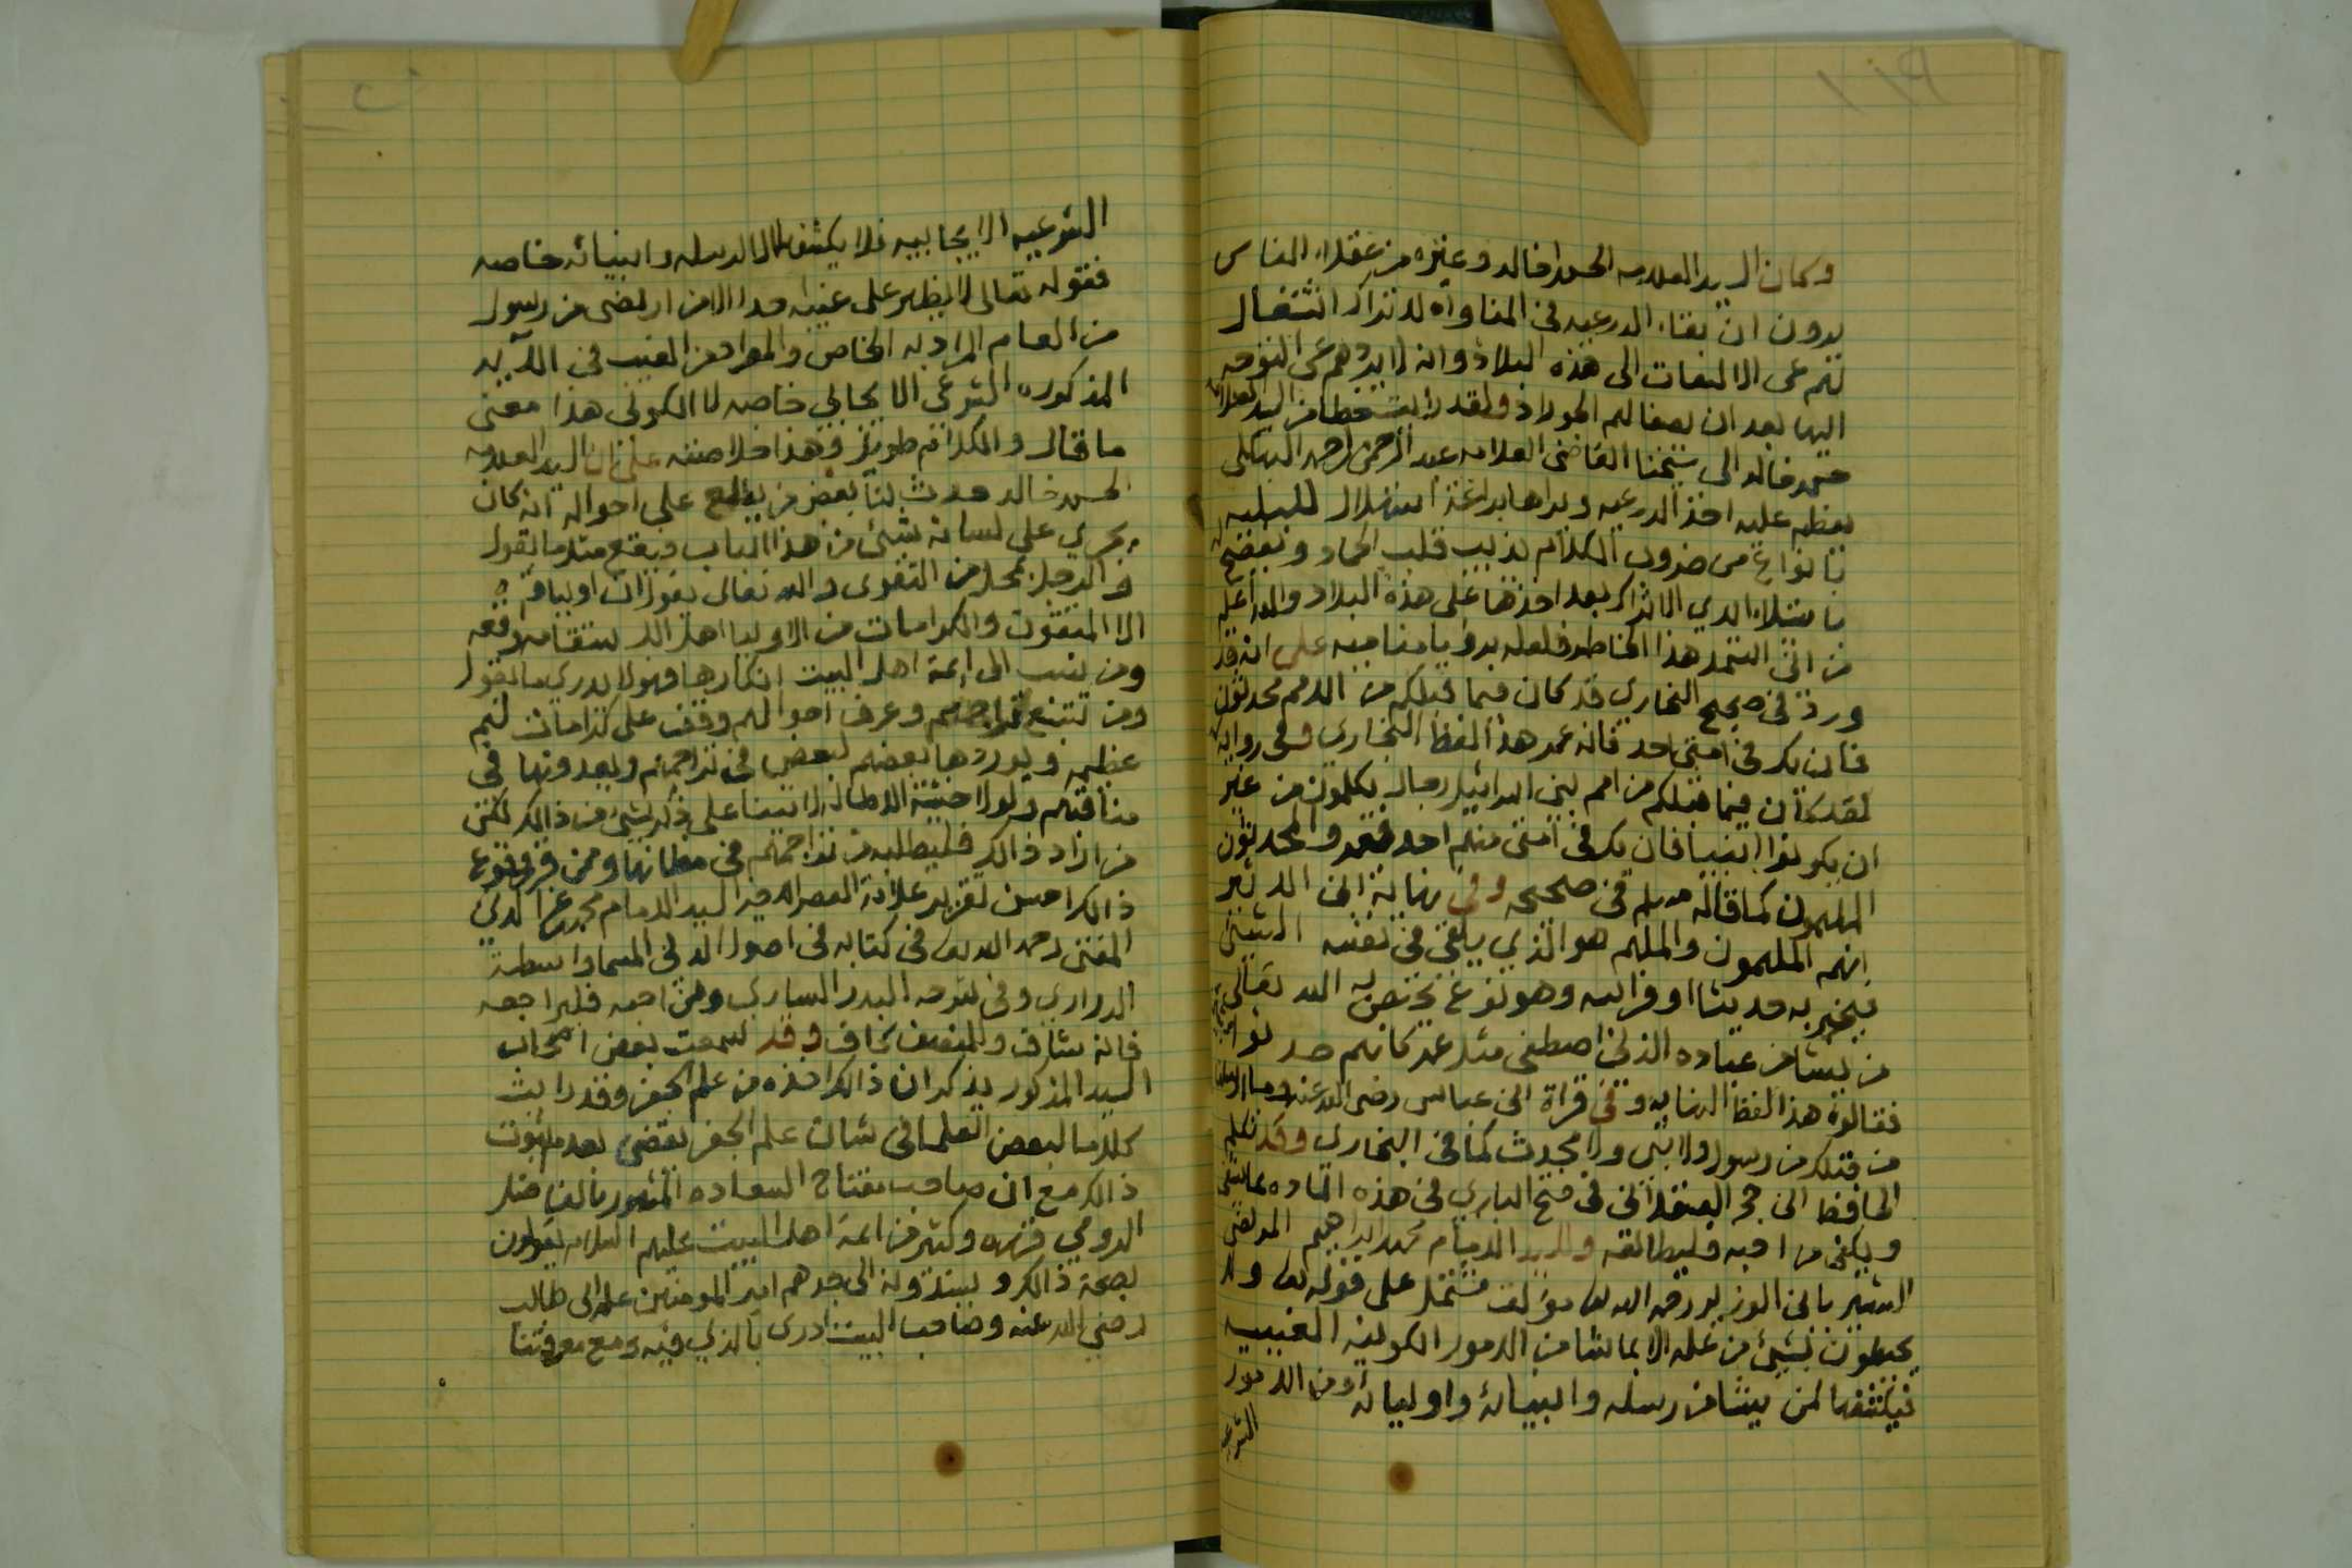 وكان السيد العلامه الحسن خالد وغيره من عقلاء الناس
يرون ان بقاء الدرعيه في المناواه للاتراك اشتغال
لهم عن الالتفات الى هذه البلاد وانه لا يردهم عن التوجه
اليها بعد ان يصفا لهم الحولاد ولقد رايت خطا من السيد العلامه
حسن خالد الى شيخنا القاضي العلامه عبد الرحمن احمد البهكلي
يعظم عليه اخذ الدرعيه ويراها براعة استهلال للبليه
بانواع من ضروب الكلام يذيب قلب الجماد ويفصح
باستيلاء ايدي الاتراك بعد اخذها على هذه البلاد والله اعلم
من اين استمد هذا الخاطر فلعله برويا مناميه على انه قد
ورد في صحيح البخاري قد كان فيما قبلكم من الامم محدثون
فان يكن في امتي احد فانه عمر هذا لفظ البخاري وفي روايه
لقد كان فيما قبلكم من امم بني اسرائيل رجال يكلمون من غير
ان يكونوا انبيا فان يك في امتي منهم احد فعمر والمحدثون
الملهمون كما قاله مسلم في صحيحه وفي نهاية ابن الاثير
انهم الملهمون والملهم هو الذي يلقى في نفسه الشيئ
فيخبر به حديثا او فراسه وهو نوع يختص به الله تعالى
من يشا من عباده الذين اصطفى مثل عمر كانهم حدثوا بشيئ
فقالوه هذا لفظ النهايه وفي قراة ابن عباس رضي الله عنه وما ارسلنا
من قبلك من رسول ولا نبي ولا محدث كما في البخاري وقد تكلم
الحافظ ابن حجر العسقلاني في فتح الباري في هذه الماده بما يشفي
ويكفي من احبه فليطالعه وللسيد الامام محمد ابراهيم المرتضى
الشهير بابن الوزير رحمه الله مولف مشتمل على قوله تعالى ولا
يحيطون بشيئ من علمه الا بما شا من الامور الكونيه الغيبيه
فيكشفها لمن يشا من رسله وانبيائه واوليائه ومن الامور
الشرعيه
الشرعيه الايجابيه فلا يكشفها الا لرسله وانبيائه خاصه
فقوله تعالى لا يظهر على غيبه احدا الا من ارتضى من رسول
من العام المراد به الخاص والمراد من الغيب في الآيه
المذكوره الشرعي الايجابي خاصه لا الكوني هذا معنى
ما قال والكلام طويل وهذا خلاصته على ان السيد العلامه
الحسن خالد حدث لنا بعض من يطلع على احواله انه كان
يجري على لسانه شيئ من هذا الباب ويقع مثل ما يقول
والرجل بمحل من التقوى والله تعالى يقول ان اولياؤه
الا المتقون والكرامات من الاوليا اهل الاستقامه واقعه
ومن نسب الى ائمة اهل البيت انكارها فهو لا يدري ما يقول
ومن تتبع تراجمهم وعرف احوالهم وقف على كرامات لهم
عظيمه ويوردها بعضهم لبعض في تراجمهم ويعدونها في
مناقبهم ولولا خشية الاطاله لاتينا على ذكر شيئ من ذالك لكن
من اراد ذالك فليطلبه من تراجمهم في مظانها وممن قرر وقوع
ذالك احسن تقرير علامة العصر الاخير السيد الامام محمد عز الدين
المفتي رحمه الله تعالى في كتابه في اصول الدين المسما واسطة
الدراري وفي شرحه البدر الساري ومن احبه فليراجعه
فانه شاف وللمنصف كاف وقد سمعت بعض اصحاب
السيد المذكور يذكر ان ذالك اخذه من علم الجفر وقد رايت
كلاما لبعض العلما في شان علم الجفر يقضي بعدم ثبوت
ذالك مع ان صاحب مفتاح السعاده المشهور بالفاضل
الرومي قرره وكثير من ائمة اهل البيت عليهم السلام يقولون
بصحة ذالك ويسندونه الى جدهم امير المومنين علي ابن ابي طالب
رضي الله عنه وصاحب البيت ادرى بالذي فيه ومع معرفتنا